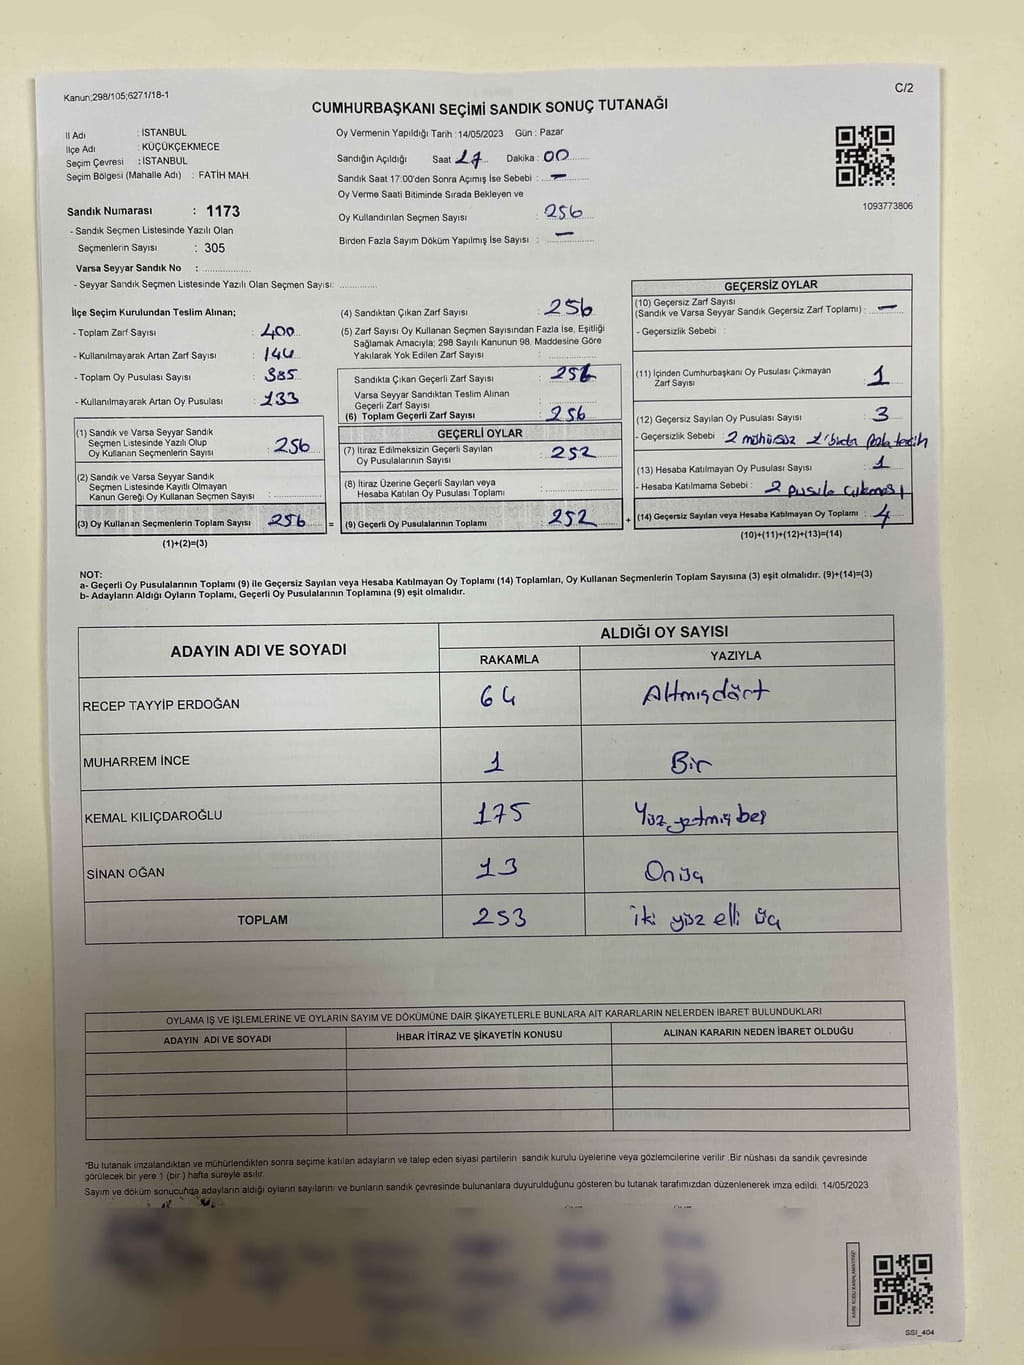 Kanun;298/105;6271/18-1
C/2
CUMHURBAŞKANI SEÇİMİ SANDIK SONUÇ TUTANAĞI
İl Adı : İSTANBUL
İlçe Adı : KÜÇÜKÇEKMECE
Seçim Çevresi : İSTANBUL
Seçim Bölgesi (Mahalle Adı) : FATİH MAH.
Sandık Numarası : 1173
- Sandık Seçmen Listesinde Yazılı Olan
Seçmenlerin Sayısı : 305
Varsa Seyyar Sandık No :
- Seyyar Sandık Seçmen Listesinde Yazılı Olan Seçmen Sayısı:
Oy Vermenin Yapıldığı Tarih : 14/05/2023 Gün : Pazar
Sandığın Açıldığı Saat 17 Dakika : 00
Sandık Saat 17:00'den Sonra Açımış İse Sebebi : —
Oy Verme Saati Bitiminde Sırada Bekleyen ve
Oy Kullandırılan Seçmen Sayısı : 256
Birden Fazla Sayım Döküm Yapılmış İse Sayısı : —
1093773806
İlçe Seçim Kurulundan Teslim Alınan;
- Toplam Zarf Sayısı : 400
- Kullanılmayarak Artan Zarf Sayısı : 144
- Toplam Oy Pusulası Sayısı : 385
- Kullanılmayarak Artan Oy Pusulası : 133
(1) Sandık ve Varsa Seyyar Sandık
Seçmen Listesinde Yazılı Olup
Oy Kullanan Seçmenlerin Sayısı : 256
(2) Sandık ve Varsa Seyyar Sandık
Seçmen Listesinde Kayıtlı Olmayan
Kanun Gereği Oy Kullanan Seçmen Sayısı :
(3) Oy Kullanan Seçmenlerin Toplam Sayısı : 256 =
(1)+(2)=(3)
(4) Sandıktan Çıkan Zarf Sayısı : 256
(5) Zarf Sayısı Oy Kullanan Seçmen Sayısından Fazla İse, Eşitliği
Sağlamak Amacıyla; 298 Sayılı Kanunun 98. Maddesine Göre
Yakılarak Yok Edilen Zarf Sayısı :
Sandıkta Çıkan Geçerli Zarf Sayısı : 256
Varsa Seyyar Sandıktan Teslim Alınan
Geçerli Zarf Sayısı :
(6) Toplam Geçerli Zarf Sayısı : 256
GEÇERLİ OYLAR
(7) İtiraz Edilmeksizin Geçerli Sayılan
Oy Pusulalarının Sayısı : 252
(8) İtiraz Üzerine Geçerli Sayılan veya
Hesaba Katılan Oy Pusulası Toplamı :
(9) Geçerli Oy Pusulalarının Toplamı : 252 +
GEÇERSİZ OYLAR
(10) Geçersiz Zarf Sayısı
(Sandık ve Varsa Seyyar Sandık Geçersiz Zarf Toplamı) : —
- Geçersizlik Sebebi :
(11) İçinden Cumhurbaşkanı Oy Pusulası Çıkmayan
Zarf Sayısı : 1
(12) Geçersiz Sayılan Oy Pusulası Sayısı : 3
- Geçersizlik Sebebi : 2 mühürsüz 1'birden fazla tercih
(13) Hesaba Katılmayan Oy Pusulası Sayısı : 1
- Hesaba Katılmama Sebebi : 2 pusula çıkması
(14) Geçersiz Sayılan veya Hesaba Katılmayan Oy Toplamı : 4
(10)+(11)+(12)+(13)=(14)
NOT:
a- Geçerli Oy Pusulalarının Toplamı (9) ile Geçersiz Sayılan veya Hesaba Katılmayan Oy Toplamı (14) Toplamları, Oy Kullanan Seçmenlerin Toplam Sayısına (3) eşit olmalıdır. (9)+(14)=(3)
b- Adayların Aldığı Oyların Toplamı, Geçerli Oy Pusulalarının Toplamına (9) eşit olmalıdır.
ADAYIN ADI VE SOYADI
ALDIĞI OY SAYISI
RAKAMLA YAZIYLA
RECEP TAYYİP ERDOĞAN 64 Altmışdört
MUHARREM İNCE 1 Bir
KEMAL KILIÇDAROĞLU 175 Yüz yetmiş beş
SİNAN OĞAN 13 Onüç
TOPLAM 253 iki yüz elli üç
OYLAMA İŞ VE İŞLEMLERİNE VE OYLARIN SAYIM VE DÖKÜMÜNE DAİR ŞİKAYETLERLE BUNLARA AİT KARARLARIN NELERDEN İBARET BULUNDUKLARI
ADAYIN ADI VE SOYADI İHBAR İTİRAZ VE ŞİKAYETİN KONUSU ALINAN KARARIN NEDEN İBARET OLDUĞU
*Bu tutanak imzalandıktan ve mühürlendikten sonra seçime katılan adayların ve talep eden siyasi partilerin sandık kurulu üyelerine veya gözlemcilerine verilir .Bir nüshası da sandık çevresinde
görülecek bir yere 1 (bir ) hafta süreyle asılır.
Sayım ve döküm sonucunda adayların aldığı oyların sayılarını ve bunların sandık çevresinde bulunanlara duyurulduğunu gösteren bu tutanak tarafımızdan düzenlenerek imza edildi. 14/05/2023
SSI_404